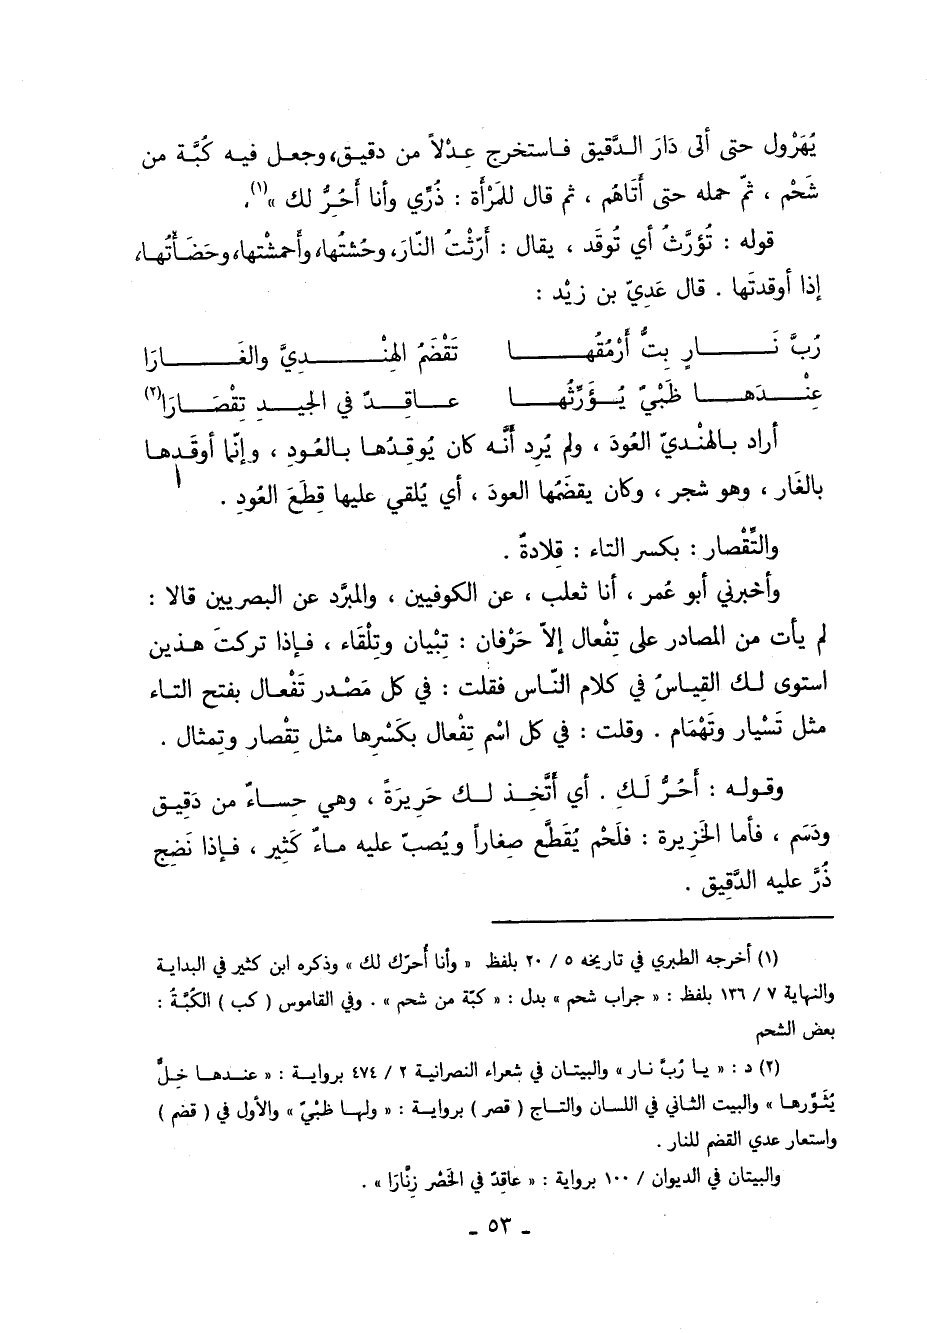 يُهَرْوِل حتى أتى دَارَ الدَّقيق فاستخرج عِدْلاً من دقيق، وجعل فيه كُبَّة من
شَحْم ، ثمّ حمله حتى أَتَاهُم ، ثم قال للمَرْأة : ذُرِّي وأنا أَحُرُّ لك »(١).
قوله : تُؤرَّثُ أي تُوقَد ، يقال : أَرَّثْتُ النّارَ، وحُشتُها، وأَحمشْتها، وحَضَأتُها،
إذا أوقدتَها . قال عَديّ بن زيْد :
رُبَّ نَارٍ بتُّ أَرْمُقُها    تَقْضَمُ الهِنْديَّ والغَارَا
عِنْدَها ظَبْيٌ يُؤَرِّثُها    عاقِدٌ في الجيدِ تِقْصَارَا(٢)
أراد بالهنْديّ العُودَ ، ولم يُرِد أنَّه كان يُوقِدُها بالعُودِ ، وإنّما أوقَدها
بالغَار ، وهو شجر ، وكان يقضَمُها العودَ ، أي يُلقي عليها قِطَعَ العُودِ .
والتِّقْصار : بكسر التاء : قِلادةٌ .
وأخبرني أبو عُمر ، أنا ثعلب ، عن الكوفيين ، والمبرَّد عن البصريين قالا :
لم يأت من المصادر على تِفْعال إلاّ حَرْفان : تِبْيان وتِلْقَاء ، فإذا تركتَ هذين
استوى لك القِياسُ في كلام النّاس فقلت : في كل مَصْدر تَفْعال بفتح التاء
مثل تَسْيار وتَهْمَام . وقلت : في كل اسْم تِفْعال بكَسْرها مثل تِقْصار وتِمثال .
وقوله : أَحُرُّ لَكِ . أي أتَّخِذ لك حَرِيرَةً ، وهي حِساءٌ من دَقِيق
ودَسَم ، فأما الخَزِيرة : فلَحْم يُقَطَّع صِغاراً ويُصبّ عليه ماءٌ كَثِير ، فإذا نَضِج
ذُرَّ عليه الدَّقِيق .
(١) أخرجه الطبري في تاريخه ٥ / ٢٠ بلفظ « وأنا أحرّك لك » وذكره ابن كثير في البداية
والنهاية ٧ / ١٣٦ بلفظ : « جراب شحم » بدل : « كبّة من شحم » . وفي القاموس ( كب ) الكُبَّةُ :
بعض الشحم
(٢) د : « يا رُبَّ نار » والبيتان في شعراء النصرانية ٢ / ٤٧٤ برواية : « عندها خِلٌّ
يُثوِّرها » والبيت الثاني في اللسان والتاج ( قصر ) برواية : « ولها ظَبْيٌ » والأول في ( قضم )
واستعار عدي القضم للنار .
والبيتان في الديوان / ١٠٠ برواية : « عاقِدٌ في الخَصْر زنَّارَا » .
ـ ٥٣ ـ